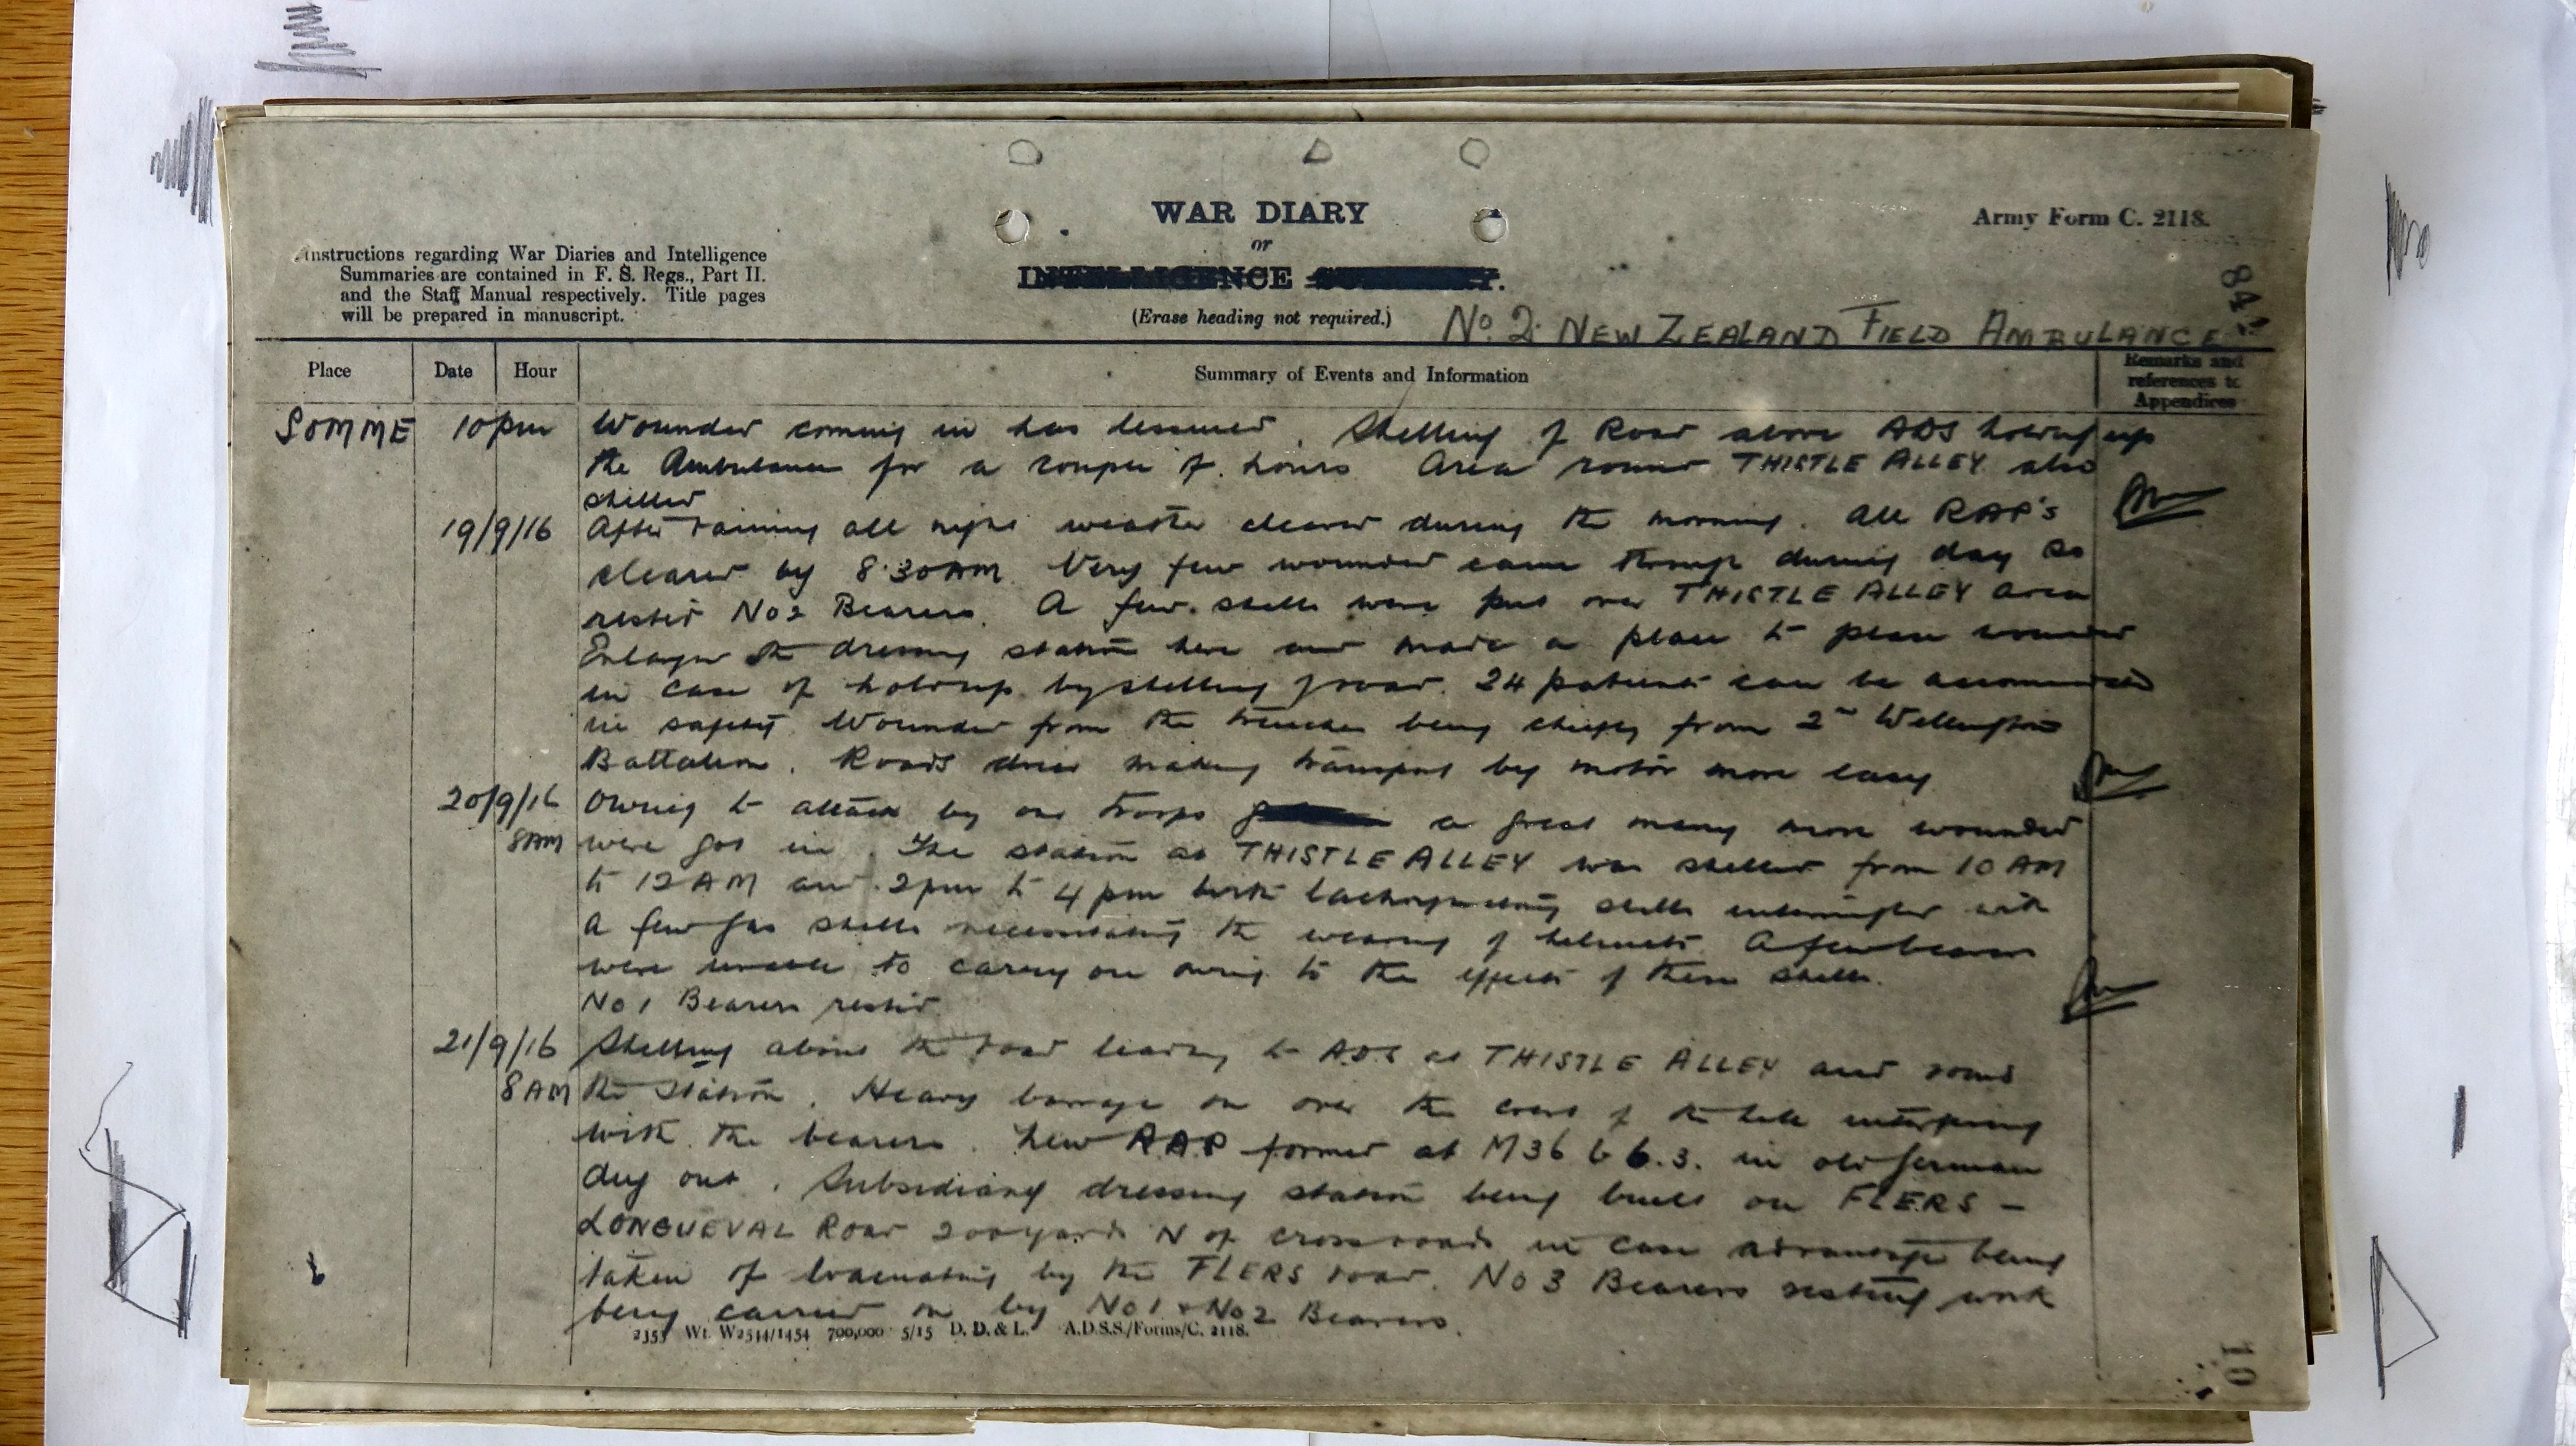 WAR DIARY
or
INTELLIGENCE SUMMARY.
(Erase heading not required.)
Army Form C. 2118.
Instructions regarding War Diaries and Intelligence
Summaries are contained in F. S. Regs., Part II.
and the Staff Manual respectively. Title pages
will be prepared in manuscript.
No. 2 NEW ZEALAND FIELD AMBULANCE
84
Place Date Hour Summary of Events and Information Remarks and
references to
Appendices
SOMME 10pm Wounded coming in has lessened. Shelling of Road above ADS holding up
the Ambulances for a couple of hours Area round THISTLE ALLEY also
shelled
19/9/16 After raining all night weather cleared during the morning. All RAP's
cleared by 8.30AM. Very few wounded came through during day so
rested No2 Bearers. A few shells were put over THISTLE ALLEY area
Enlarged the dressing station here and made a place to place wounded
in case of holdup by shelling of road. 24 patients can be accommodated
in safety. Wounded from the trenches being chiefly from 2nd Wellington
Battalion. Roads dried making transport by motor more easy
20/9/16 Owing to attack by our troops a great many more wounded
8AM were got in. The station at THISTLE ALLEY was shelled from 10 AM
to 12AM and 2pm to 4pm with lachrymatory shells intermingled with
A few gas shells necessitating the wearing of helmets. A few bearers
were unable to carry on owing to the effects of these shells.
No 1 Bearers rested.
21/9/16 Shelling about the road leading to ADS at THISTLE ALLEY and round
8AM the Station. Heavy barrage on over the crest of the hill interfering
with the bearers. New RAP formed at M36 b 6.3. in old German
dug out. Subsidiary dressing station being built on FLERS -
LONGUEVAL Road 200 yards N of cross roads in case advantage being
taken of evacuating by the FLERS road. No 3 Bearers resting work
being carried on by No1 & No2 Bearers.
2353 Wt. W2544/1454 700,000 5/15 D. D. & L. A.D.S.S./Forms/C. 2118.
10